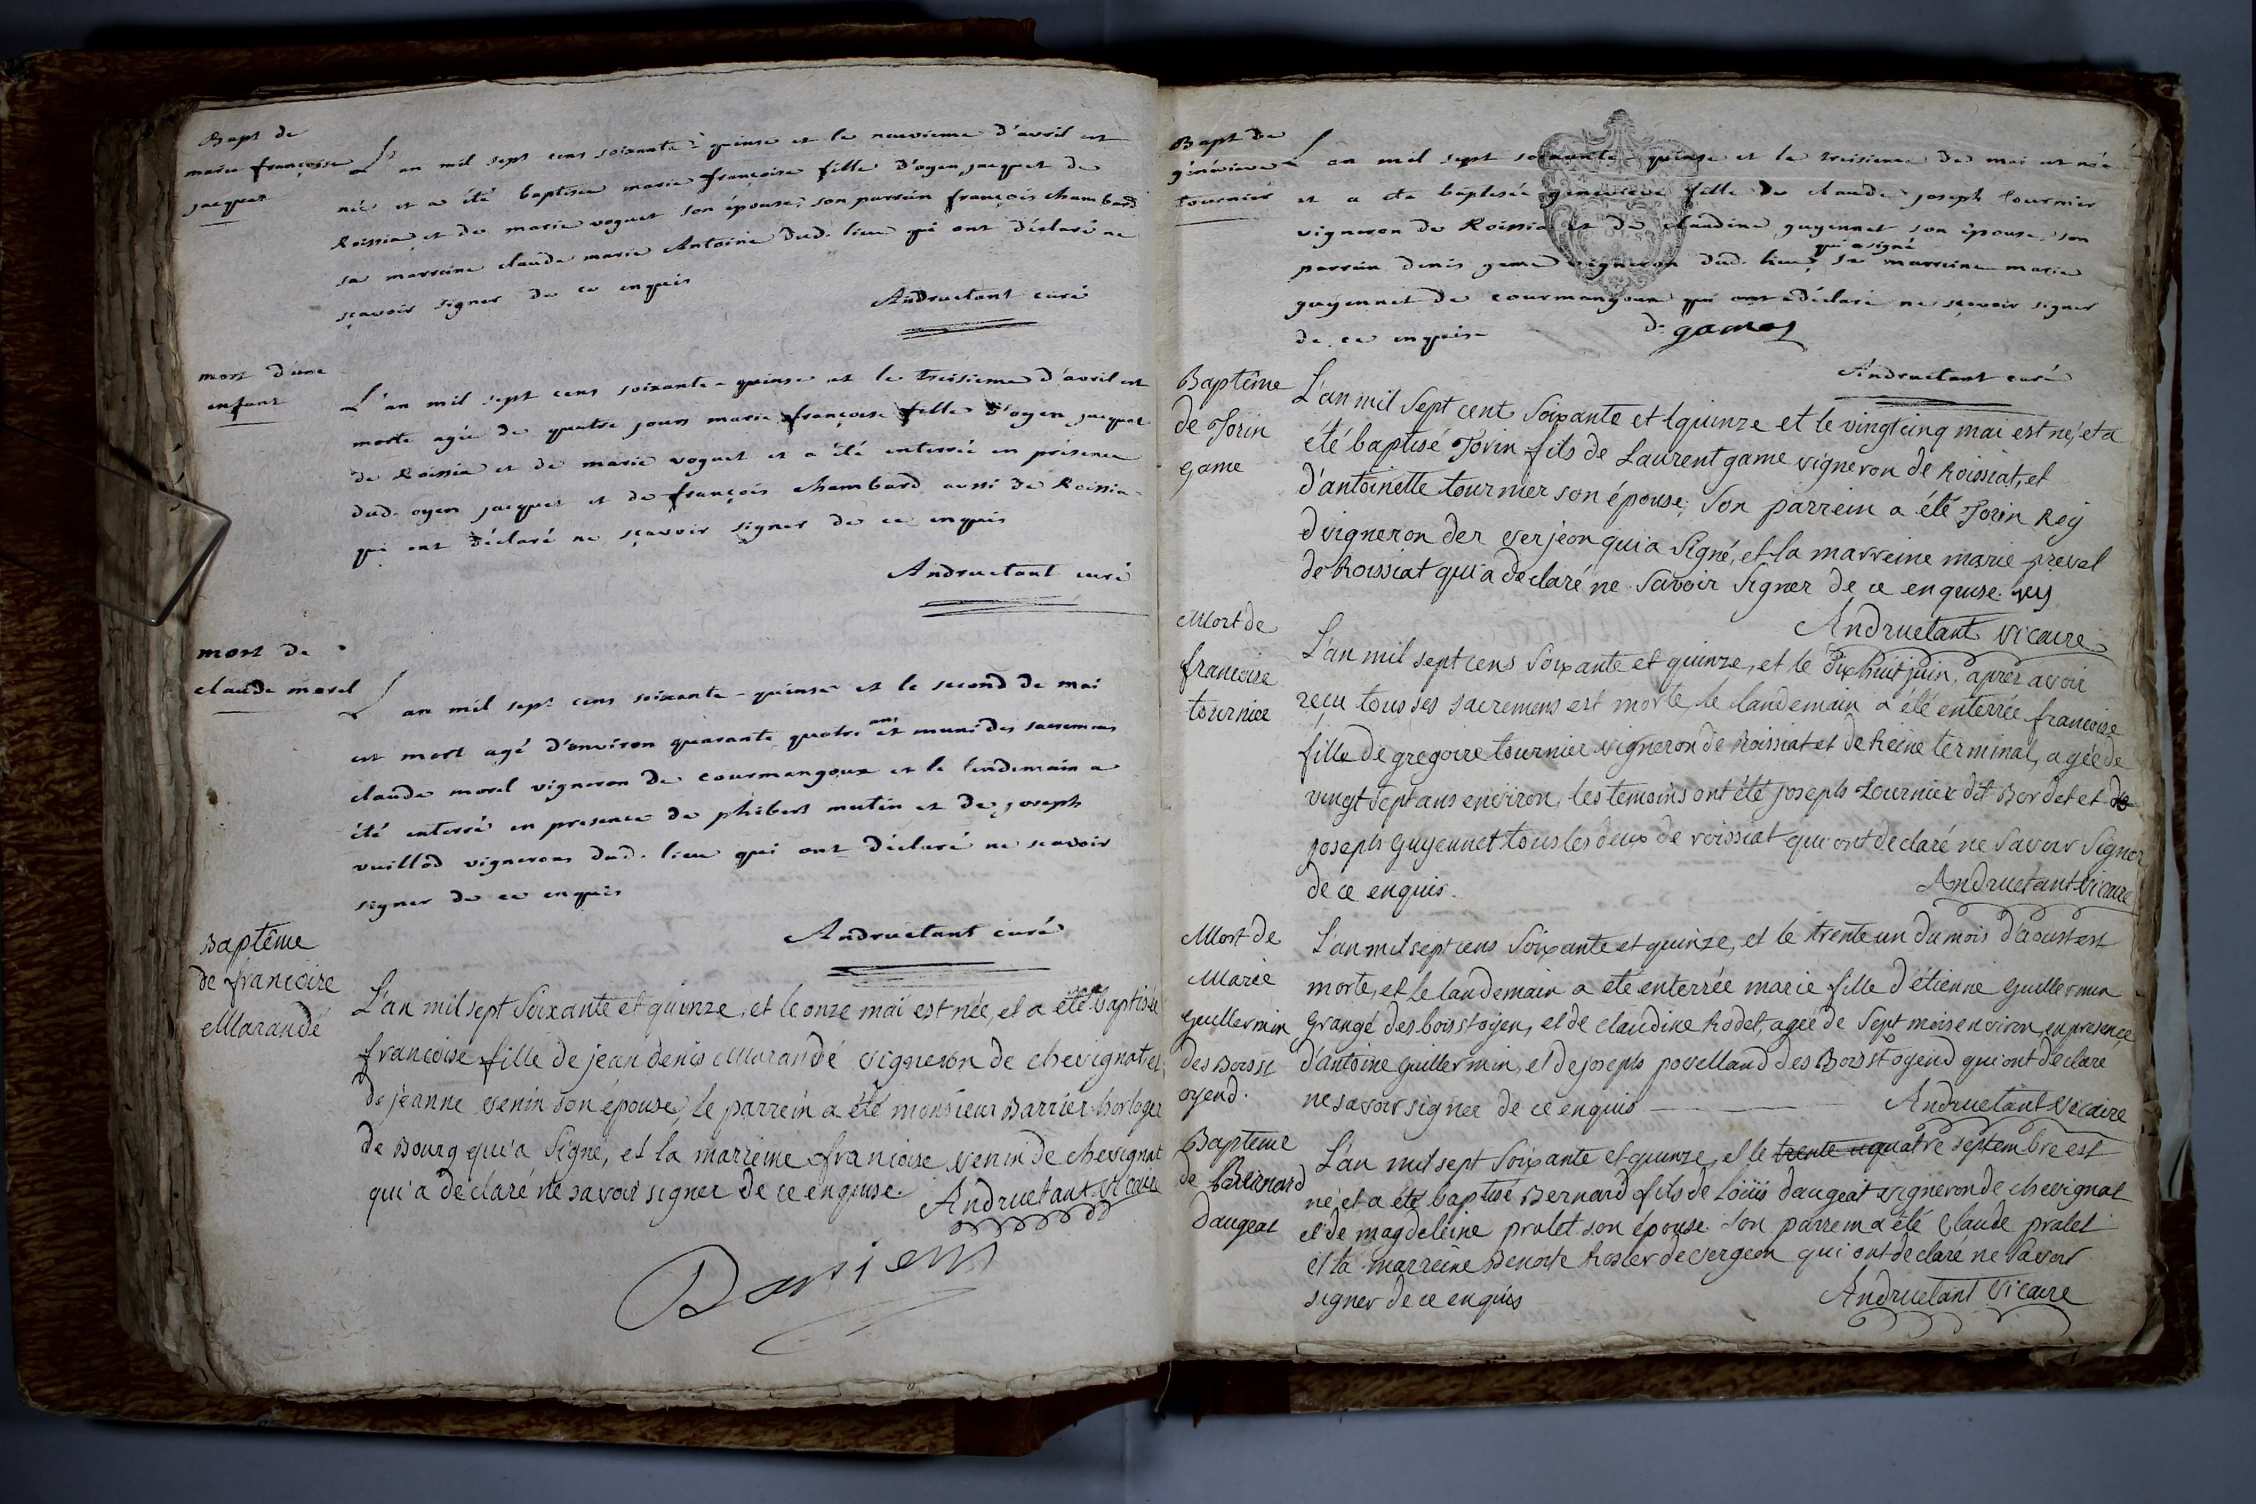 Bapt de
marie françoise
jacquet
L'an mil sept cens soixante-quinse et le neuvieme d'avril est
née et a été baptisée marie françoise fille d'oyen jacquet de
Roissia et de marie voguet son épouse, son parrain françois chambard
sa marreine claude marie Antoine dud. lieu qui ont déclaré ne
sçavoir signer de ce enquis
Andructant curé
mort d'une
enfant
L'an mil sept cens soixante-quinse et le treisieme d'avril est
morte agée de quatre jours marie françoise fille d'oyen jacquet
de Roissia et de marie voguet et a été enterrée en présence
dud. oyen jacquet et de françois chambard aussi de Roissia
qui ont déclaré ne sçavoir signer de ce enquis
Andructant curé
mort de
claude morel
L'an mil sept cens soixante-quinse et le second de mai
est mort agé d'environ quarante quatre ans et muni des sacremens
claude morel vigneron de courmangoux et le lendemain a
été enterré en presence de phibert mutin et de joseph
vuillod vignerons dud. lieu qui ont déclaré ne scavoir
signer de ce enquis
Andructant curé
Baptême
de francoise
Marandé
L'an mil sept Soixante et quinze, et le onze mai est née, et a été baptisée
francoise fille de jean denis Marandé vigneron de chevignat et
de jeanne venin son épouse, le parrein a été monsieur Barrier horloger
de Bourg qui a Signé, et la marreine francoise venin de chevignat
qui a declaré ne savoir signer de ce enquise. Andruetant Vicaire
Barrier
Bapt de
généviéve
tournier
L'an mil sept soixante-quinse et le treisieme de mai est née
et a été baptisée genevieve fille de claude joseph tournier
vigneron de Roissia et de claudine guyennet son épouse, son
parrain denis game vigneron dud. lieu, qui a signé sa marreine marie
guyennet de courmangoux qui ont déclaré ne sçavoir signer
de ce enquis
d. gamas
Andructant curé
Baptême
de Jorin
game
L'an mil Sept cent Soixante et quinze et le vingt cinq mai est né, et a
été baptisé Jorin fils de Laurent game vigneron de Roissiat, et
d'antoinette tournier son épouse; Son parrein a été Jorin Rey
vigneron der verjeon qui a Signé, et la marreine marie preval
de Roissiat qui a declaré ne Savoir Signer de ce enquise. rey
Andruetant Vicaire
Mort de
francoise
tournier
L'an mil sept cens Soixante et quinze, et le dix huit juin, après avoir
reçu tous ses sacremens est morte le landemain a été enterrée francoise
fille de gregoire tournier vigneron de Roissiat et de Reine terminal, agée de
vingt sept ans environ, les temoins ont été joseph tournier dit Bordet et de
joseph guyennet tous les deux de roissiat qui ont declaré ne Savoir Signer
de ce enquis.
Andruetant Vicaire
Mort de
Marie
guillermin
des Bois st
oyend.
L'an mil sept cens Soixante et quinze, et le trente un du mois d'aoust est
morte, et le landemain a eté enterrée marie fille d'étienne guillermin
grangé des bois st oyen, et de claudine Rodet, agée de Sept mois environ, en presence
d'antoine guillermin, et de joseph povelland des Bois st oyend qui ont declaré
ne savoir signer de ce enquis
Andruetant Vicaire
Bapteme
de Bernard
Daugeat
L'an mil sept Soixante et quinze, et le trente quatre septembre est
né et a été baptisé Bernard fils de Loüis daugeat vigneron de chevignat
et de magdeleine pralet son épouse. Son parrein a été Claude pralet
et la marreine Benoite Rosier de vergeon qui ont declaré ne Savoir
signer de ce enquis
Andruetant Vicaire